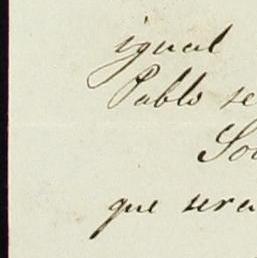 igual
Pablo se
So
que sera